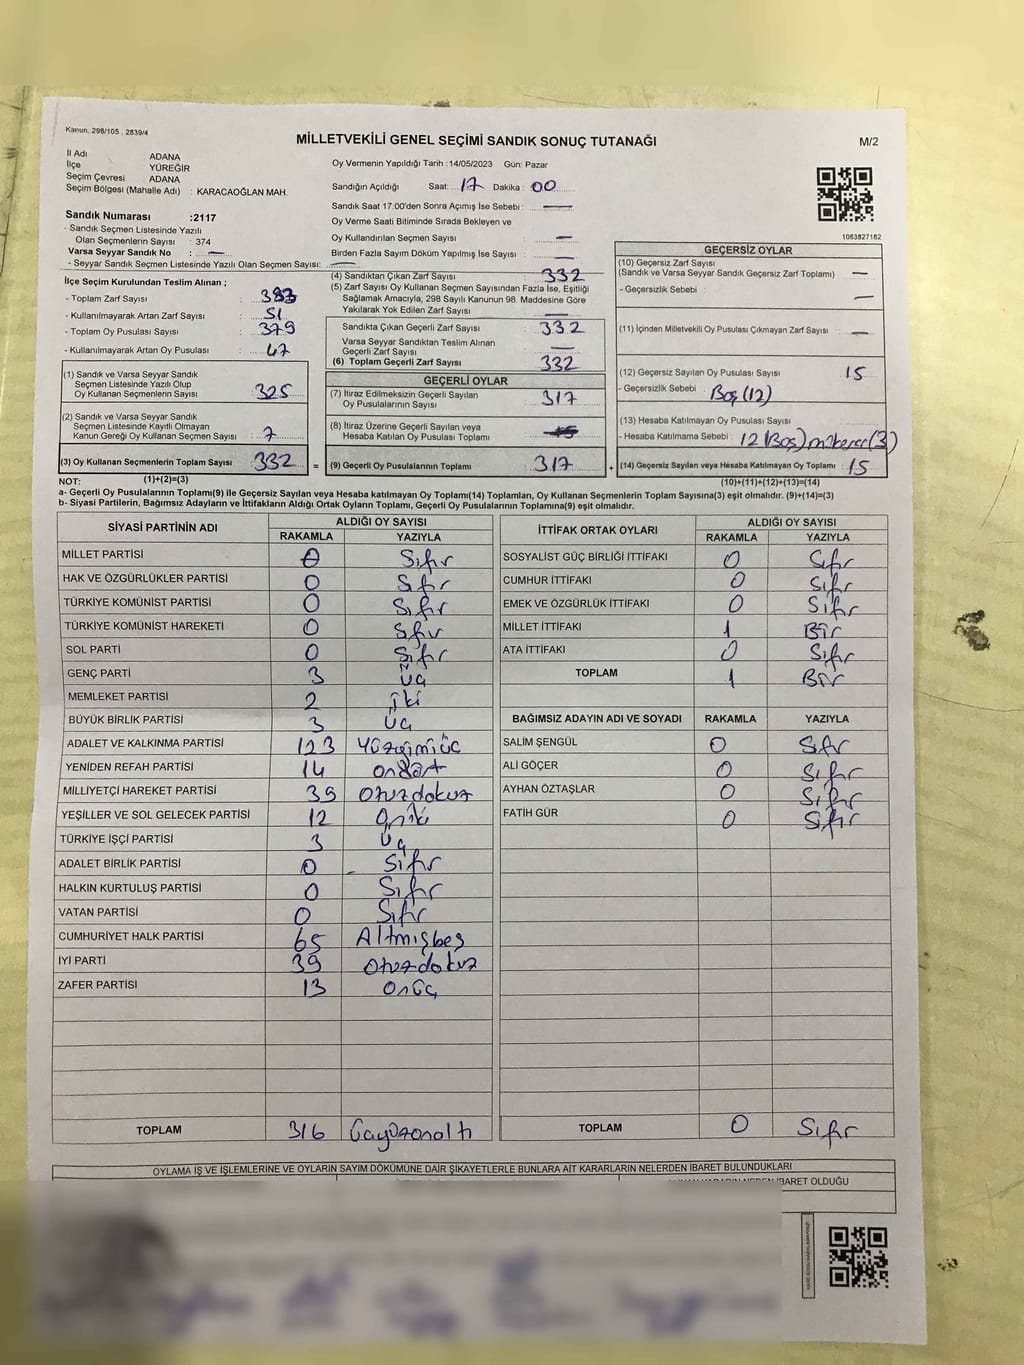 Kanun, 298/105 , 2839/4
MİLLETVEKİLİ GENEL SEÇİMİ SANDIK SONUÇ TUTANAĞI
M/2
İl Adı : ADANA
İlçe : YÜREĞİR
Seçim Çevresi : ADANA
Seçim Bölgesi (Mahalle Adı) : KARACAOĞLAN MAH.
Sandık Numarası :2117
- Sandık Seçmen Listesinde Yazılı
Olan Seçmenlerin Sayısı : 374
Varsa Seyyar Sandık No : —
- Seyyar Sandık Seçmen Listesinde Yazılı Olan Seçmen Sayısı: —
İlçe Seçim Kurulundan Teslim Alınan ;
- Toplam Zarf Sayısı : 383
- Kullanılmayarak Artan Zarf Sayısı : 51
- Toplam Oy Pusulası Sayısı : 379
- Kullanılmayarak Artan Oy Pusulası : 47
(1) Sandık ve Varsa Seyyar Sandık
Seçmen Listesinde Yazılı Olup
Oy Kullanan Seçmenlerin Sayısı : 325
(2) Sandık ve Varsa Seyyar Sandık
Seçmen Listesinde Kayıtlı Olmayan
Kanun Gereği Oy Kullanan Seçmen Sayısı : 7
(3) Oy Kullanan Seçmenlerin Toplam Sayısı : 332
Oy Vermenin Yapıldığı Tarih :14/05/2023 Gün: Pazar
Sandığın Açıldığı Saat: 17 Dakika : 00
Sandık Saat 17:00'den Sonra Açımış İse Sebebi : —
Oy Verme Saati Bitiminde Sırada Bekleyen ve
Oy Kullandırılan Seçmen Sayısı : —
Birden Fazla Sayım Döküm Yapılmış İse Sayısı : —
(4) Sandıktan Çıkan Zarf Sayısı : 332
(5) Zarf Sayısı Oy Kullanan Seçmen Sayısından Fazla İse, Eşitliği
Sağlamak Amacıyla, 298 Sayılı Kanunun 98. Maddesine Göre
Yakılarak Yok Edilen Zarf Sayısı : —
Sandıkta Çıkan Geçerli Zarf Sayısı : 332
Varsa Seyyar Sandıktan Teslim Alınan
Geçerli Zarf Sayısı : —
(6) Toplam Geçerli Zarf Sayısı : 332
GEÇERLİ OYLAR
(7) İtiraz Edilmeksizin Geçerli Sayılan
Oy Pusulalarının Sayısı : 317
(8) İtiraz Üzerine Geçerli Sayılan veya
Hesaba Katılan Oy Pusulası Toplamı :
= (9) Geçerli Oy Pusulalarının Toplamı : 317 +
1083827182
GEÇERSİZ OYLAR
(10) Geçersiz Zarf Sayısı
(Sandık ve Varsa Seyyar Sandık Geçersiz Zarf Toplamı) : —
- Geçersizlik Sebebi : —
(11) İçinden Milletvekili Oy Pusulası Çıkmayan Zarf Sayısı : —
(12) Geçersiz Sayılan Oy Pusulası Sayısı : 15
- Geçersizlik Sebebi : Boş (12)
(13) Hesaba Katılmayan Oy Pusulası Sayısı :
- Hesaba Katılmama Sebebi : 12 (Boş) mükerrer (3)
(14) Geçersiz Sayılan veya Hesaba Katılmayan Oy Toplamı : 15
NOT: (1)+(2)=(3)
(10)+(11)+(12)+(13)=(14)
a- Geçerli Oy Pusulalarının Toplamı(9) ile Geçersiz Sayılan veya Hesaba katılmayan Oy Toplamı(14) Toplamları, Oy Kullanan Seçmenlerin Toplam Sayısına(3) eşit olmalıdır. (9)+(14)=(3)
b- Siyasi Partilerin, Bağımsız Adayların ve İttifakların Aldığı Ortak Oyların Toplamı, Geçerli Oy Pusulalarının Toplamına(9) eşit olmalıdır.
SİYASİ PARTİNİN ADI ALDIĞI OY SAYISI
RAKAMLA YAZIYLA
MİLLET PARTİSİ 0 Sıfır
HAK VE ÖZGÜRLÜKLER PARTİSİ 0 Sıfır
TÜRKİYE KOMÜNİST PARTİSİ 0 Sıfır
TÜRKİYE KOMÜNİST HAREKETİ 0 Sıfır
SOL PARTİ 0 Sıfır
GENÇ PARTİ 3 Üç
MEMLEKET PARTİSİ 2 iki
BÜYÜK BİRLİK PARTİSİ 3 Üç
ADALET VE KALKINMA PARTİSİ 123 Yüzyirmiüç
YENİDEN REFAH PARTİSİ 14 ondört
MİLLİYETÇİ HAREKET PARTİSİ 39 otuzdokuz
YEŞİLLER VE SOL GELECEK PARTİSİ 12 oniki
TÜRKİYE İŞÇİ PARTİSİ 3 Üç
ADALET BİRLİK PARTİSİ 0 Sıfır
HALKIN KURTULUŞ PARTİSİ 0 Sıfır
VATAN PARTİSİ 0 Sıfır
CUMHURİYET HALK PARTİSİ 65 Altmışbeş
İYİ PARTİ 39 otuzdokuz
ZAFER PARTİSİ 13 onüç
TOPLAM 316 Üçyüzonaltı
İTTİFAK ORTAK OYLARI ALDIĞI OY SAYISI
RAKAMLA YAZIYLA
SOSYALİST GÜÇ BİRLİĞİ İTTİFAKI 0 Sıfır
CUMHUR İTTİFAKI 0 Sıfır
EMEK VE ÖZGÜRLÜK İTTİFAKI 0 Sıfır
MİLLET İTTİFAKI 1 Bir
ATA İTTİFAKI 0 Sıfır
TOPLAM 1 Bir
BAĞIMSIZ ADAYIN ADI VE SOYADI RAKAMLA YAZIYLA
SALİM ŞENGÜL 0 Sıfır
ALİ GÖÇER 0 Sıfır
AYHAN ÖZTAŞLAR 0 Sıfır
FATİH GÜR 0 Sıfır
TOPLAM 0 Sıfır
OYLAMA İŞ VE İŞLEMLERİNE VE OYLARIN SAYIM DÖKÜMÜNE DAİR ŞİKAYETLERLE BUNLARA AİT KARARLARIN NELERDEN İBARET BULUNDUKLARI
İBARET OLDUĞU